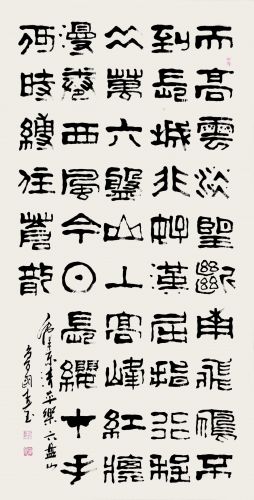 天高雲淡望斷南飛雁不
到長城非好漢屈指行程
二萬六盤山上高峰紅旗
漫卷西風今日長纓在手
何時縛住蒼龍
毛澤東清平樂六盤山